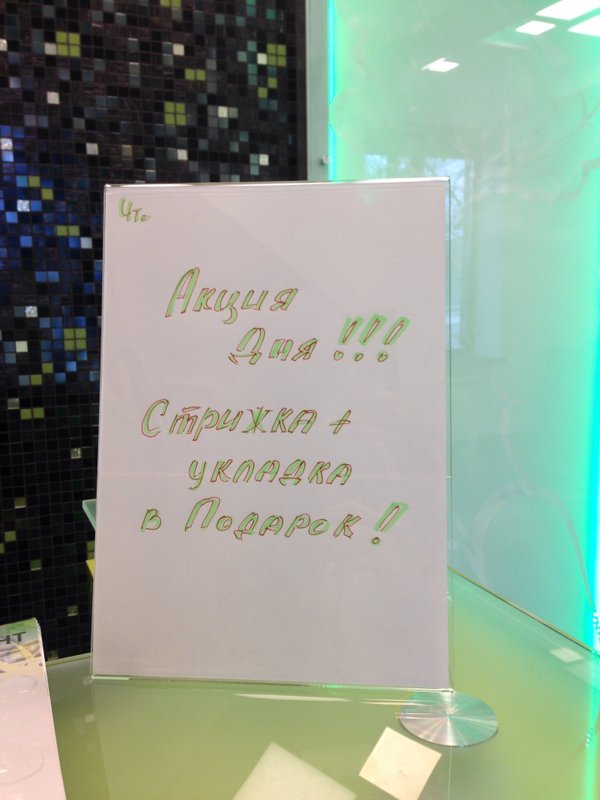 Что
Акция
Дня!!!
Стрижка +
укладка
в Подарок!!
НТ